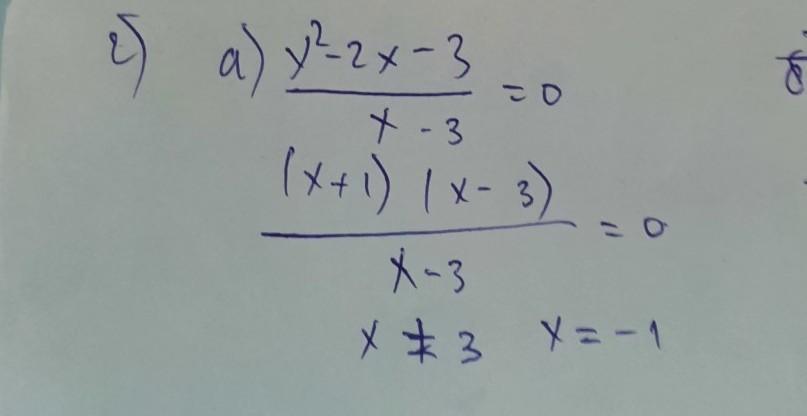 2) a) x²-2x-3
x-3 = 0
(x+1) (x-3)
x-3 = 0
x ≠ 3 x = -1